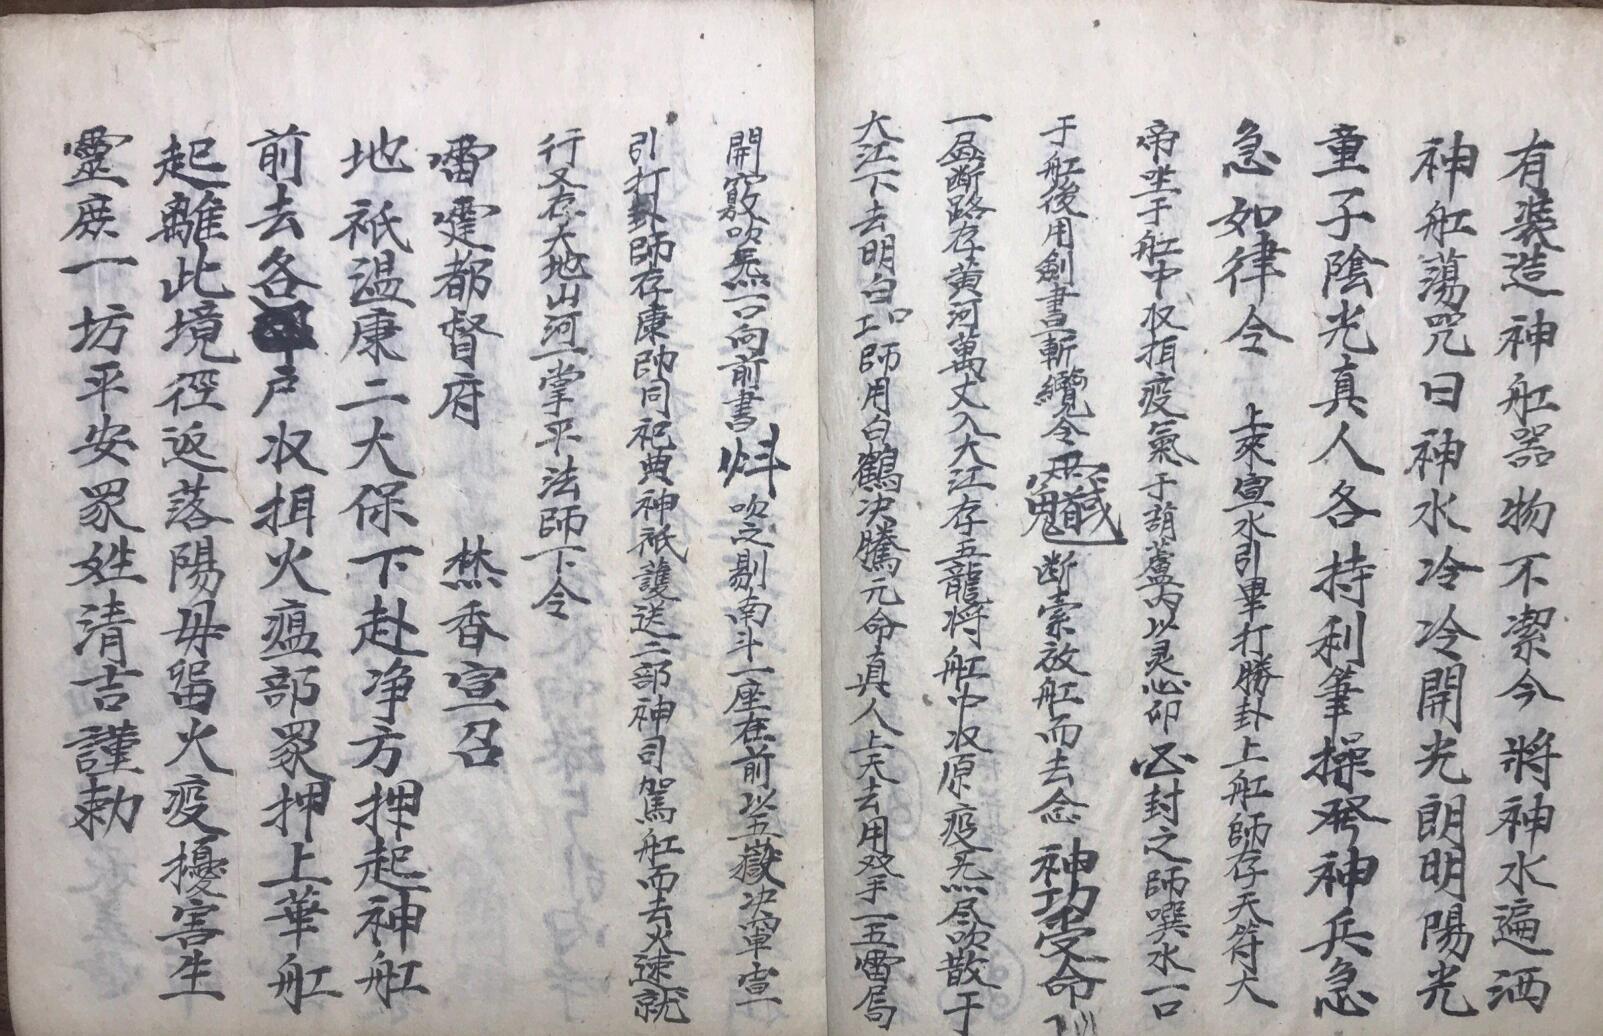 有裝造神舡器物不潔今將神水遍洒
神舡蕩咒曰神水冷冷開光朗明陽光
童子陰光真人各持利筆操發神兵急
急如律令 上來宣水引畢打勝卦上舡師存天符大
帝坐于舡中収捐疫氣于葫蘆內以灵心卯 封之師噀水一口
于舡後用劍書斬纜令 断索放舡而去念神功受命
一 断路存黃河萬丈入大江存五龍將舡中収原疫炁尽吹散于
大江下去明白 師用白鶴決騰元命真人上天去用双手一五雷局
開竅吹炁一口向前書 吹之剔南斗一座在前以五嶽决 宣
引打卦師存康帥同祀典神祇護送二部神司駕舡而去火速就
行又存天地山河一掌平法師下令
雷霆都督府 焚香宣召
地祇温康二大保下赴净方押起神舡
前去各 戶収捐火瘟部眾押上華舡
起離此境徑返落陽毋留火疫擾害生
靈庶一坊平安眾姓清吉謹勅